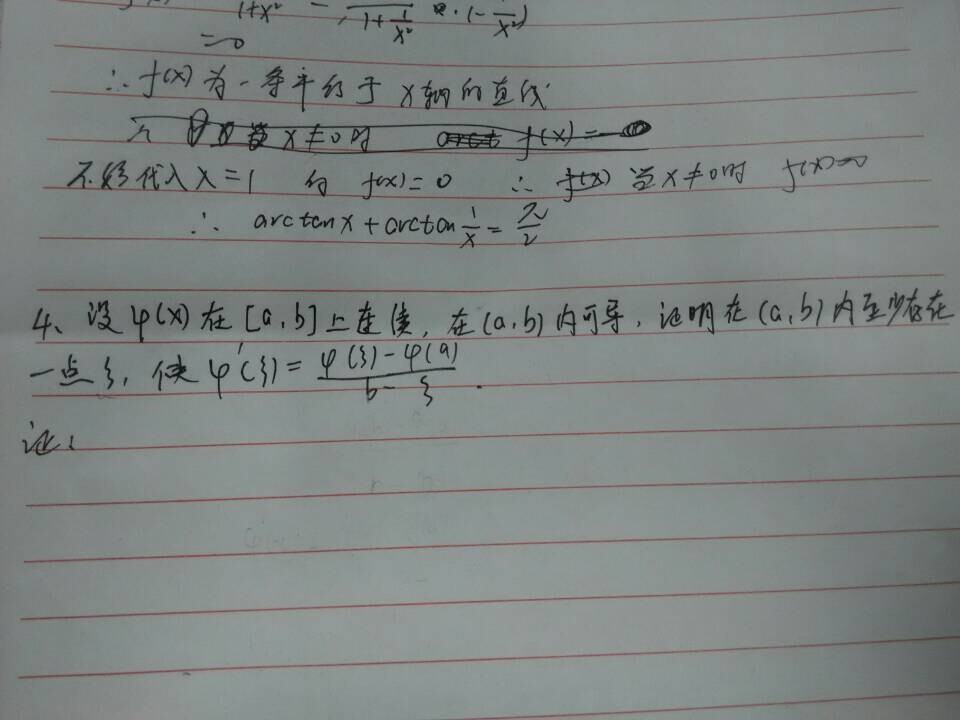 1+x² = 1+1/x² · (-1/x²)
=0
∴ f(x) 为一条平行于 x轴的直线
x≠0时 f(x)=0
不妨代入 x=1 得 f(x)=0 ∴ f(x) 当 x≠0时 f(x)=0
∴ arctan x + arctan 1/x = π/2
4、设φ(x)在[a,b]上连续,在(a,b)内可导,证明在(a,b)内至少存在
一点ξ,使φ'(ξ)= (φ(ξ)-φ(a))/(b-ξ).
证: